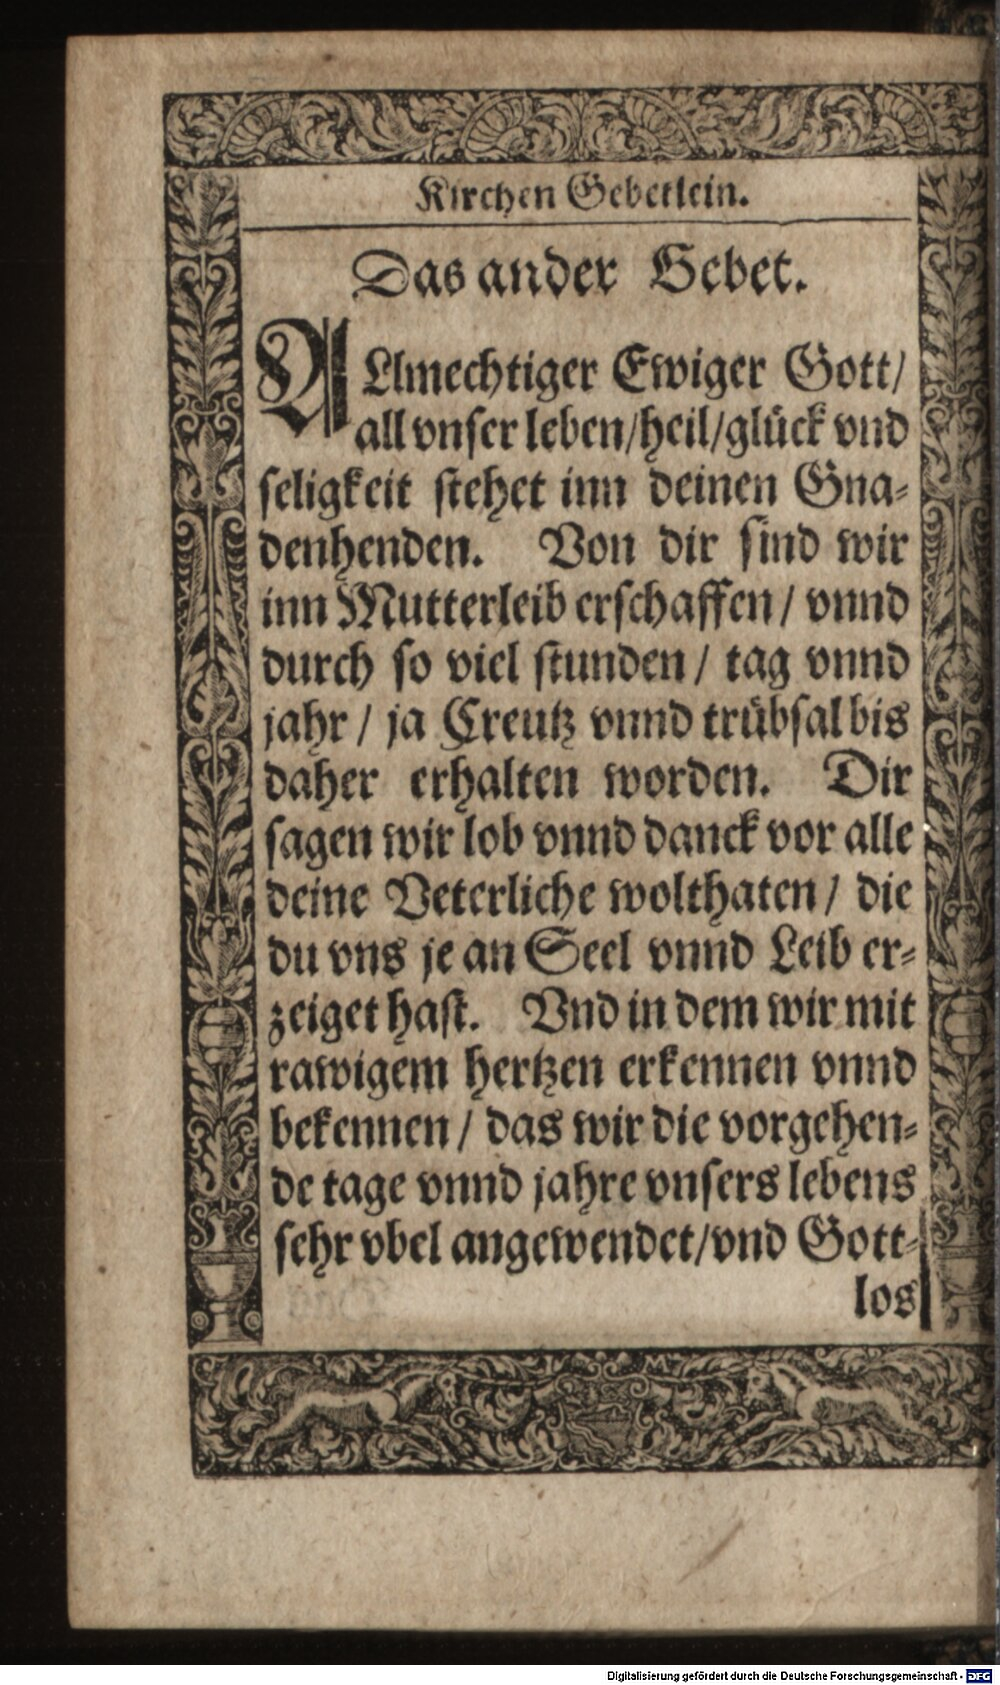 Kirchen Gebetlein.
Das ander Gebet.
ALlmechtiger Ewiger Gott/
all vnser leben/heil/glück vnd
seligkeit stehet inn deinen Gna-
denhenden. Von dir sind wir
inn Mutterleib erschaffen/ vnnd
durch so viel stunden/ tag vnnd
jahr/ ja Creutz vnnd trübsal bis
daher erhalten worden. Dir
sagen wir lob vnnd danck vor alle
deine Veterliche wolthaten/ die
du vns je an Seel vnnd Leib er-
zeiget hast. Vnd in dem wir mit
rawigem hertzen erkennen vnnd
bekennen/ das wir die vorgehen-
de tage vnnd jahre vnsers lebens
sehr vbel angewendet/vnd Gott-
los
Digitalisierung gefördert durch die Deutsche Forschungsgemeinschaft - DFG